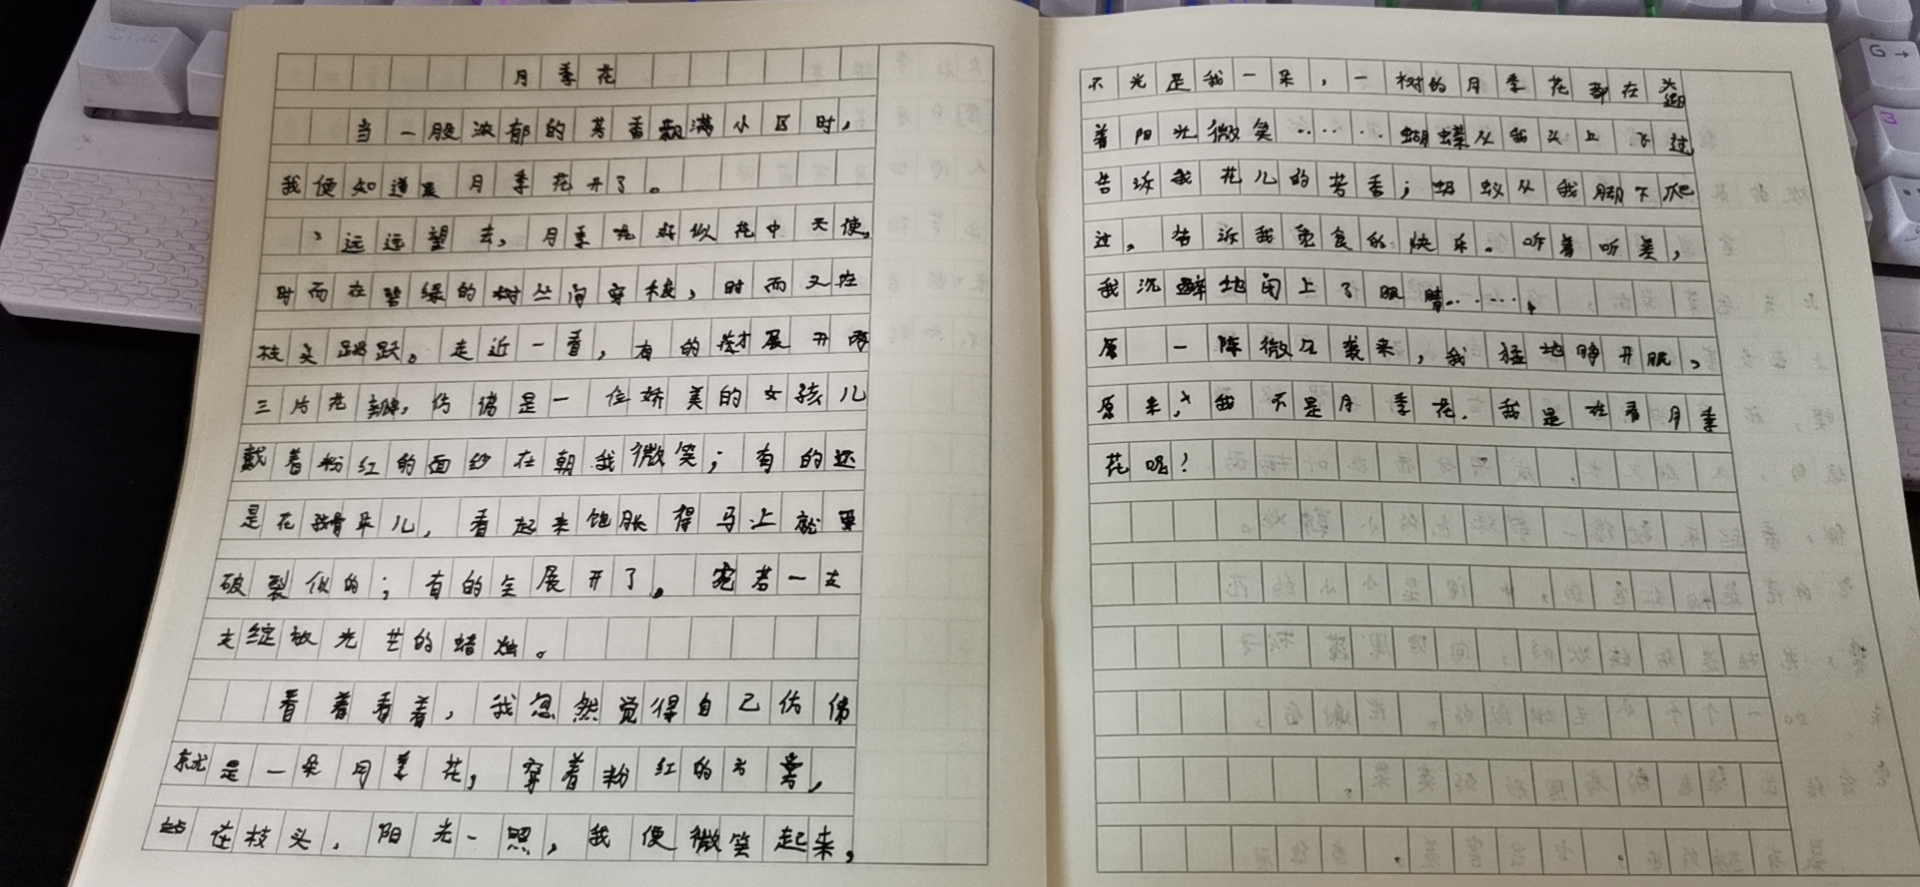 月季花
当一股浓郁的芳香飘满小区时，
我便知道是月季花开了。
远远望去，月季花好似花中天使，
时而在碧绿的树丛间穿梭，时而又在
枝头跳跃。走近一看，有的才展开两
三片花瓣，仿佛是一位娇美的女孩儿
戴着粉红的面纱在朝我微笑；有的还
是花骨朵儿，看起来饱胀得马上就要
破裂似的；有的全展开了。宛若一支
支绽放光芒的蜡烛。
看着看着，我忽然觉得自己仿佛
就是一朵月季花，穿着粉红的衣裳，
站在枝头，阳光一照，我便微笑起来，
不光是我一朵，一树的月季花都在迎
着阳光微笑……蝴蝶从我头上飞过
告诉我花儿的芳香；蚂蚁从我脚下爬
过，告诉我觅食的快乐。听着听着，
我沉醉地闭上了眼睛……
一阵微风袭来，我猛地睁开眼，
原来，我不是月季花，我是在看月季
花呢！
G
3